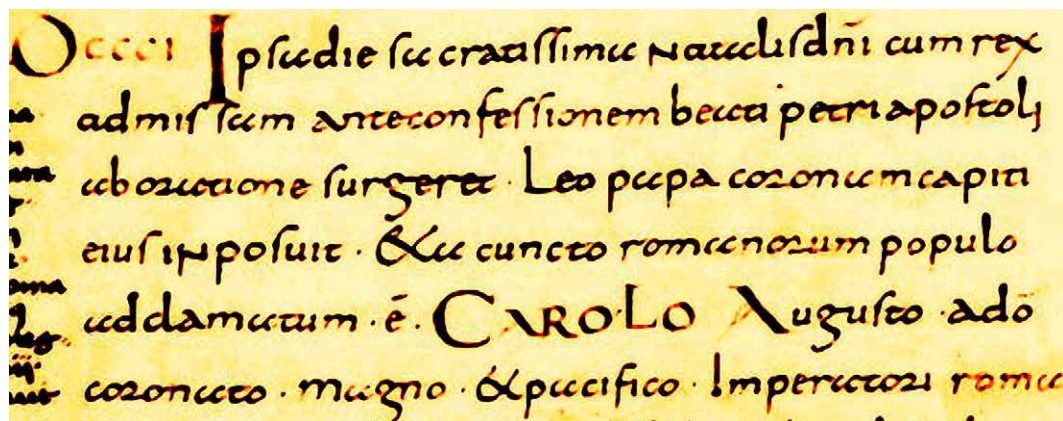 Dccci Ipsa die sacratissima natalis dñi cum rex
ad missam ante confessionem beati petri apostoli
ab oratione surgeret · Leo papa coronam capiti
eius inposuit · & a cuncto romanorum populo
adclamatum · ē · CAROLO Augusto · adō
coronato · magno · & pacifico · Imperatori roma